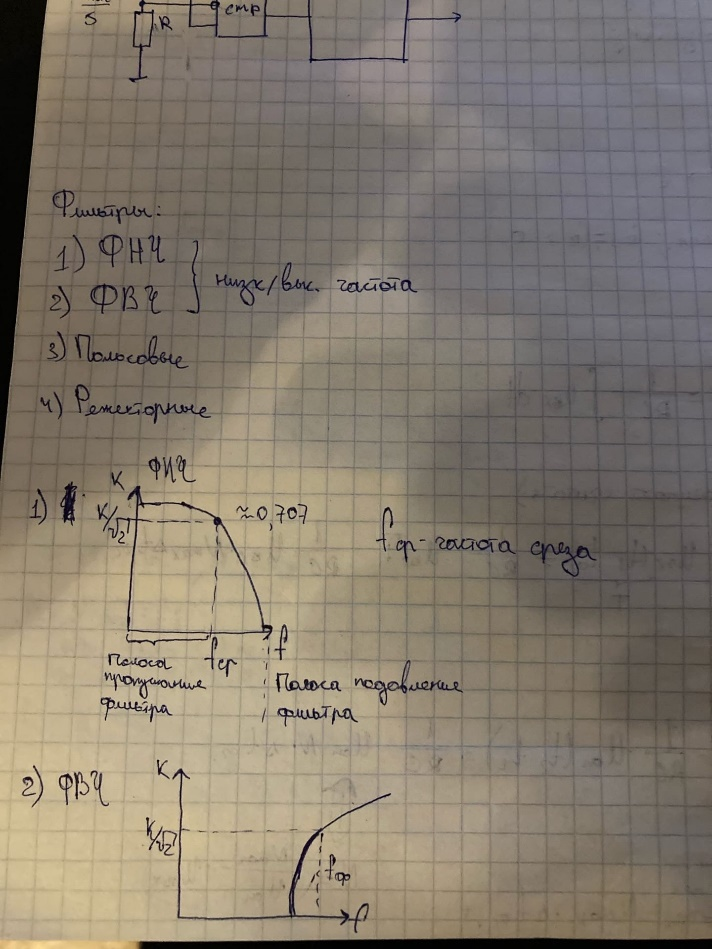 S
R
стр
Фильтры:
1) ФНЧ
2) ФВЧ
низк/выс. частота
3) Полосовые
4) Режекторные
1)
K
ФНЧ
K/√2
≈0,707
fср - частота среза
fср
f
Полоса
пропускание
фильтра
Полоса подовление
фильтра
2) ФВЧ
K
K/√2
fср
f